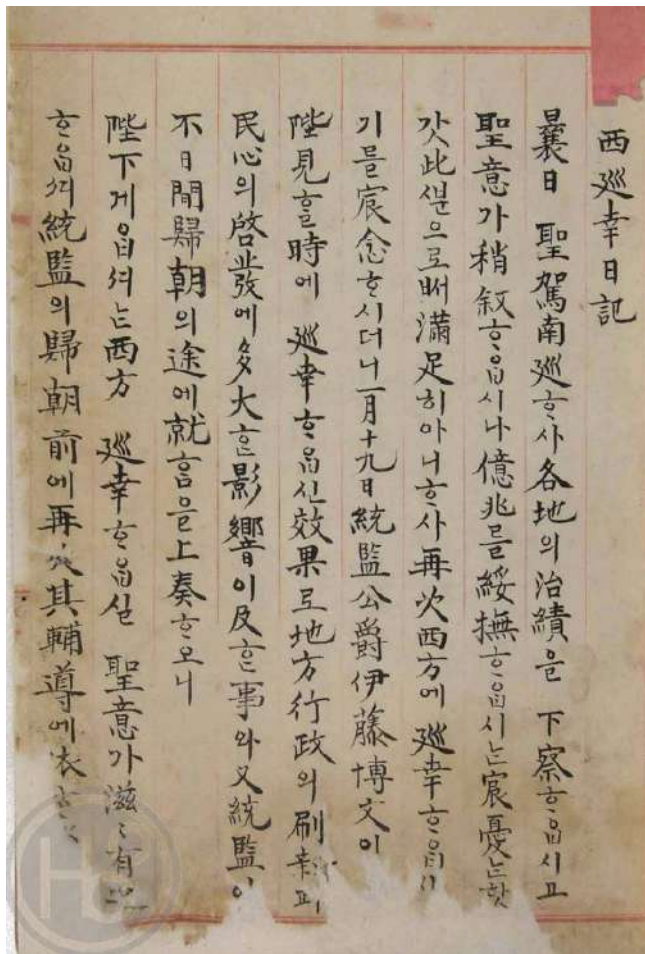 西廵幸日記
曩日 聖駕南廵ᄒᆞ사各地의治績을 下察ᄒᆞ옵시고
聖意가稍叙ᄒᆞ옵시나億兆를綏撫ᄒᆞ옵시ᄂᆞᆫ宸憂ᄂᆞᆫ
此ᄲᅮᆫ으로ᄡᅥ滿足히아니ᄒᆞ사再次西方에 廵幸ᄒᆞ옵시
기를宸念ᄒᆞ시더니一月十九日統監公爵伊藤博文이
陛見ᄒᆞᆯ時에 廵幸ᄒᆞ옵신效果로地方行政의刷新과
民心의啓發에多大ᄒᆞᆫ影響이及ᄒᆞᆫ事와又統監이
不日間歸朝의途에就홈을上奏ᄒᆞ오니
陛下게옵셔ᄂᆞᆫ西方 廵幸ᄒᆞ옵실 聖意가滋〻有
ᄒᆞ옵셔統監의歸朝前에再次其輔導에依ᄒᆞ